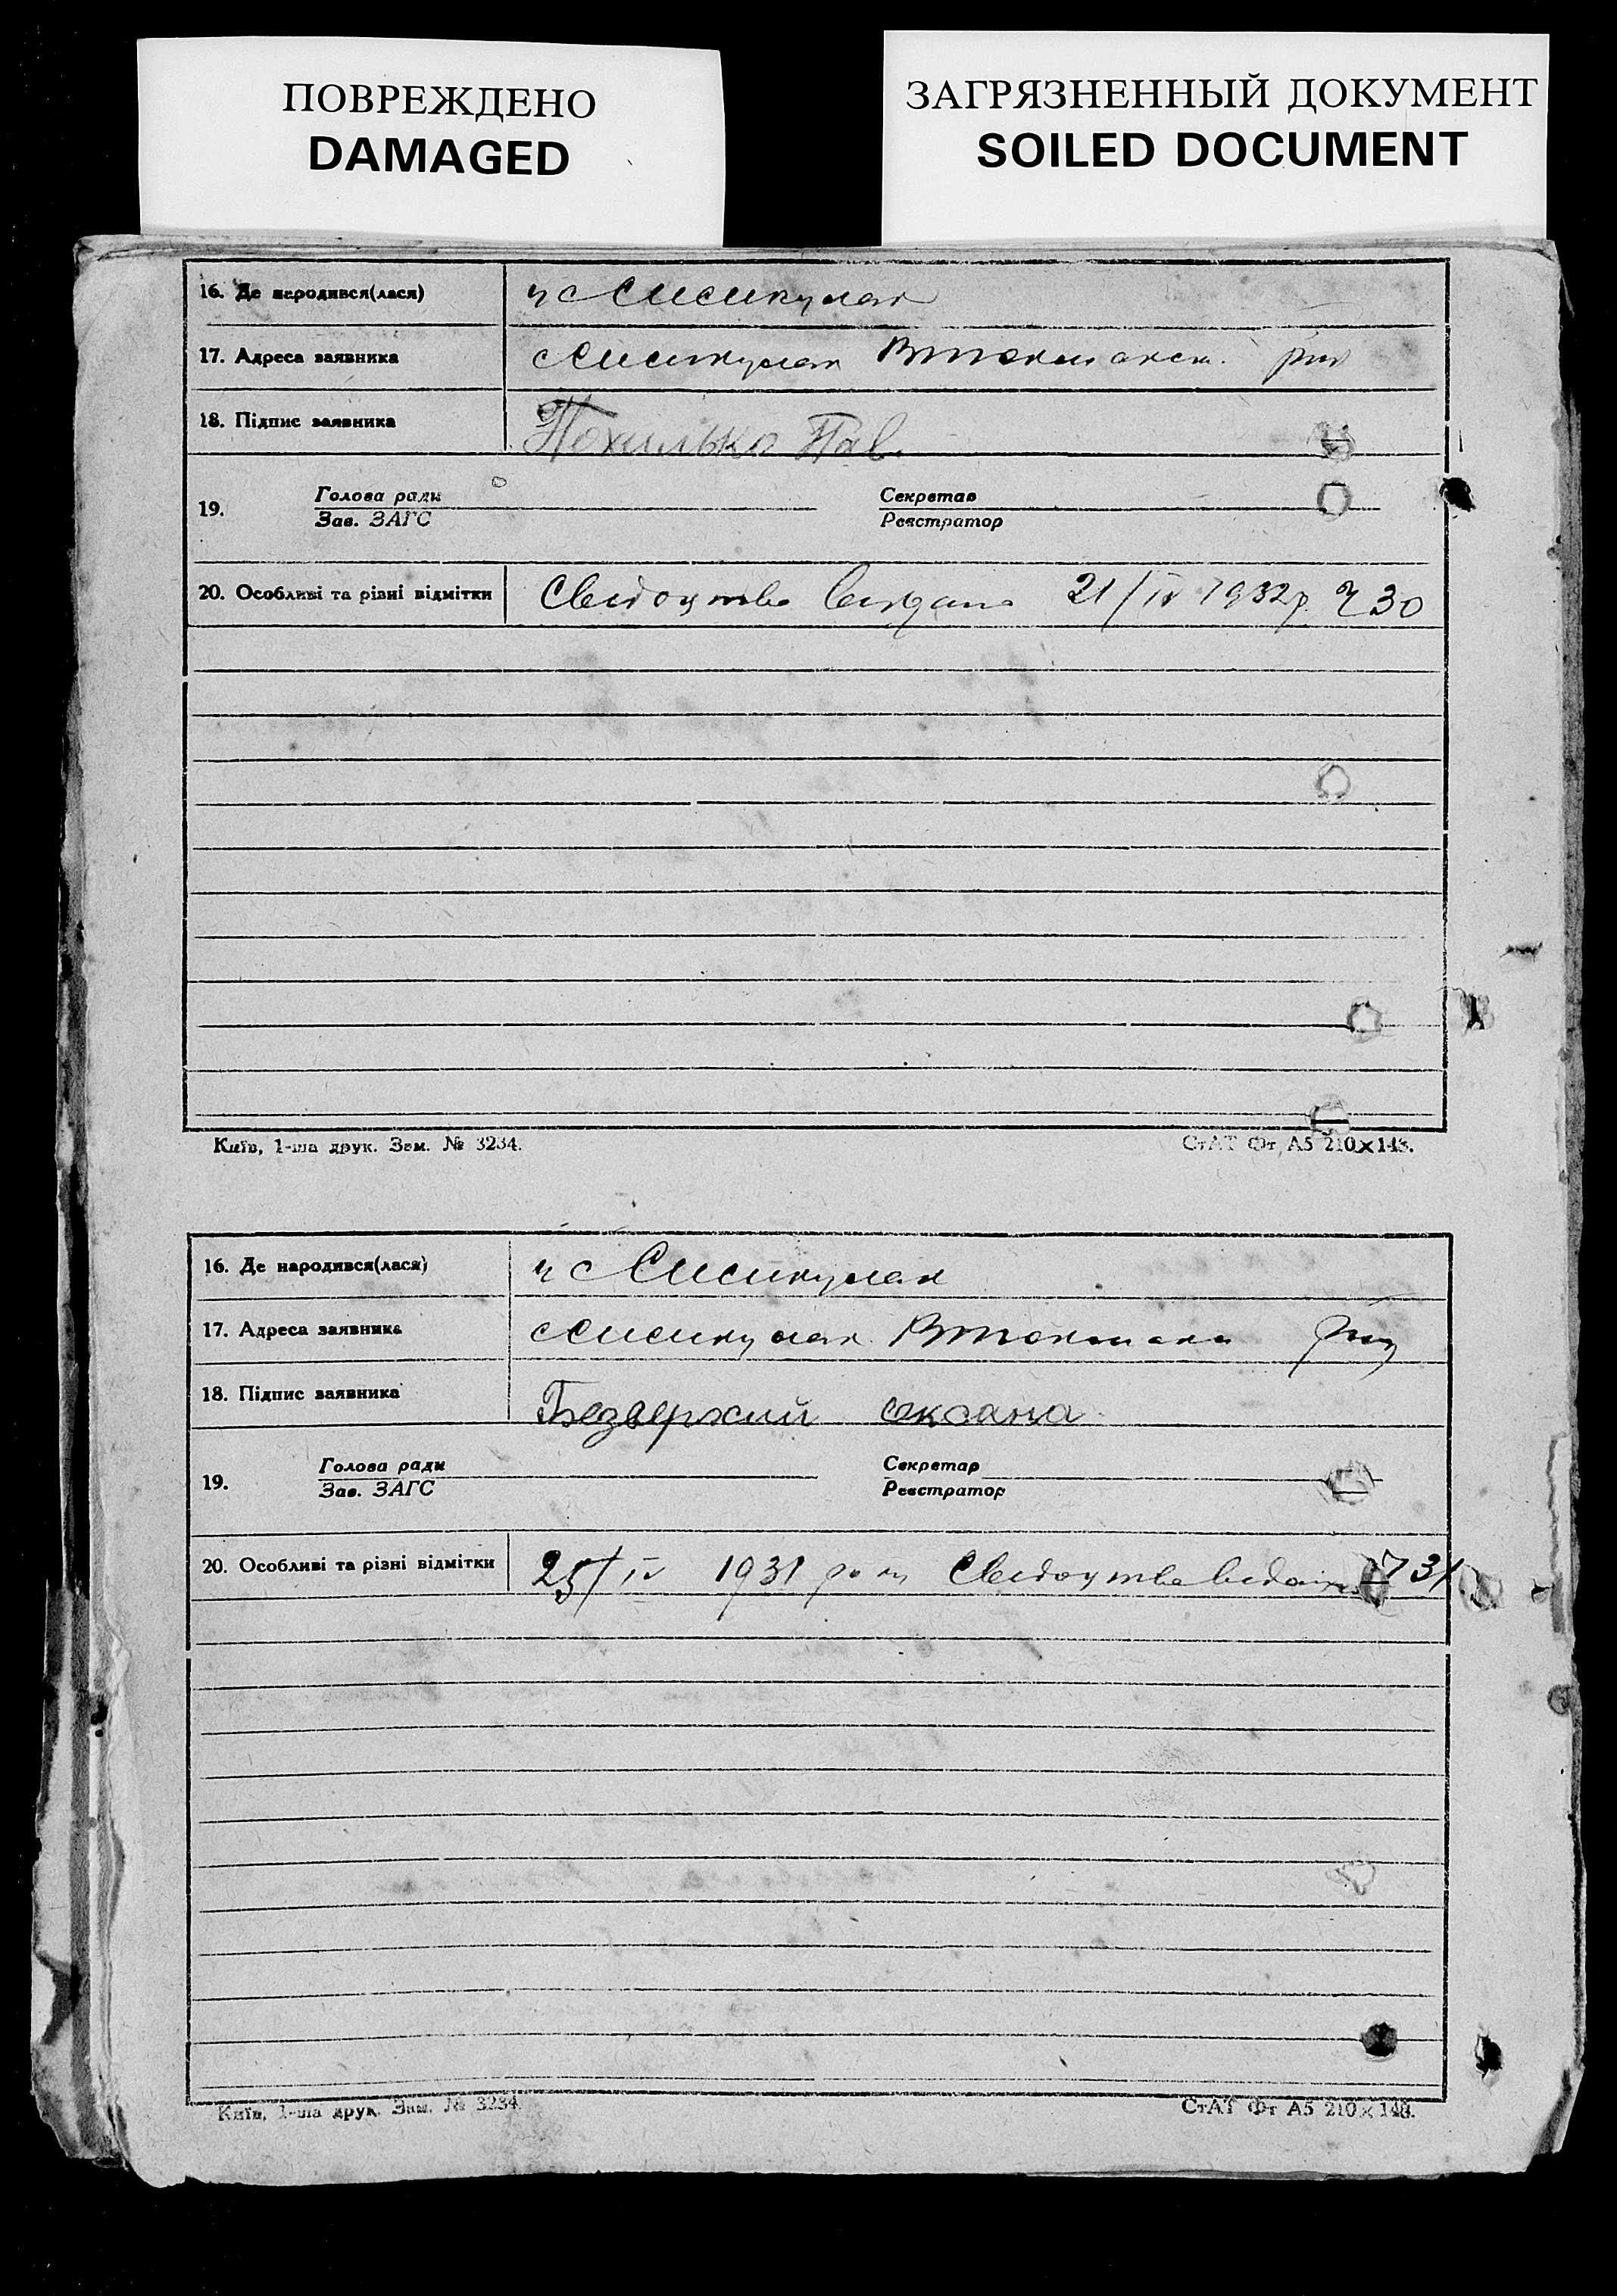 ПОВРЕЖДЕНО
DAMAGED
ЗАГРЯЗНЕННЫЙ ДОКУМЕНТ
SOILED DOCUMENT
16. Де народився(лася)
17. Адреса заявника
18. Підпис заявника Похилько Пав.
19. Голова ради Секретар
Зав. ЗАГС Реєстратор
20. Особливі та різні відмітки Свидоцтво видано 21/IV 1932р. Ч 30
Київ, 1-ша друк. Зам. № 3234. СтАТ Фт А5 210×148.
16. Де народився(лася)
17. Адреса заявника
18. Підпис заявника Безверхий оксана
19. Голова ради Секретар
Зав. ЗАГС Реєстратор
20. Особливі та різні відмітки 25/IV 1931 року Свидоцтво видано 31
Київ, 1-ша друк. Зам. № 3234 СтАТ Фт А5 210×148.